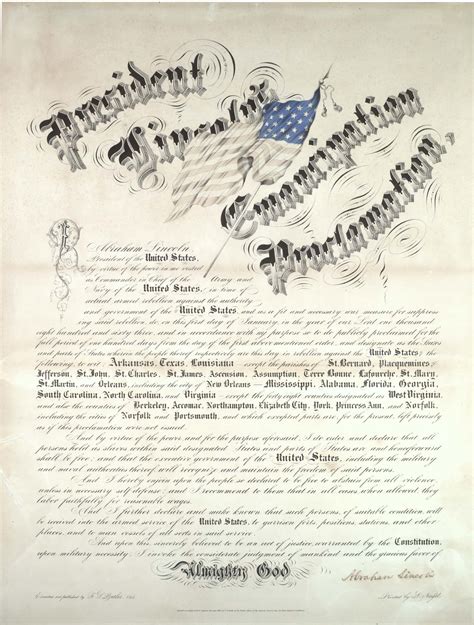 President
Lincoln's
Emancipation
Proclamation.
I Abraham Lincoln,
President of the United States,
by virtue of the power in me vested
as Commander in Chief of the Army and
Navy of the United States, in time of
actual armed rebellion against the authority
and government of the United States, and as a fit and necessary war measure for suppress
ing said rebellion, do on this first day of January, in the year of our Lord one thousand
eight hundred and sixty three, and in accordance with my purpose so to do publicly proclaimed for the
full period of one hundred days from the day of the first above mentioned order, and designate as the States
and parts of States wherein the people thereof respectively are this day in rebellion against the United States, the
following to wit: Arkansas, Texas, Louisiana except the parishes of St. Bernard, Placquemines,
Jefferson, St. John, St. Charles, St. James, Ascension, Assumption, Terre Bonne, Lafourche, St. Mary,
St. Martin, and Orleans, including the city of New Orleans — Mississippi, Alabama, Florida, Georgia,
South Carolina, North Carolina, and Virginia except the forty eight counties designated as West Virginia,
and also the counties of Berkeley, Accomac, Northampton, Elizabeth City, York, Princess Ann, and Norfolk,
including the cities of Norfolk and Portsmouth, and which excepted parts are for the present left precisely
as if this proclamation were not issued.
And by virtue of the power and for the purpose aforesaid, I do order and declare that all
persons held as slaves within said designated States and parts of States are and henceforward
shall be free; and that the executive government of the United States, including the military
and naval authorities thereof, will recognize and maintain the freedom of said persons.
And I hereby enjoin upon the people so declared to be free to abstain from all violence
unless in necessary self defense; and I recommend to them that in all cases when allowed they
labor faithfully for reasonable wages.
And I further declare and make known that such persons of suitable condition will
be received into the armed service of the United States, to garrison forts, positions, stations, and other
places, and to man vessels of all sorts in said service.
And upon this sincerely believed to be an act of justice, warranted by the Constitution,
upon military necessity, I invoke the considerate judgment of mankind and the gracious favor of
Almighty God
Abraham Lincoln